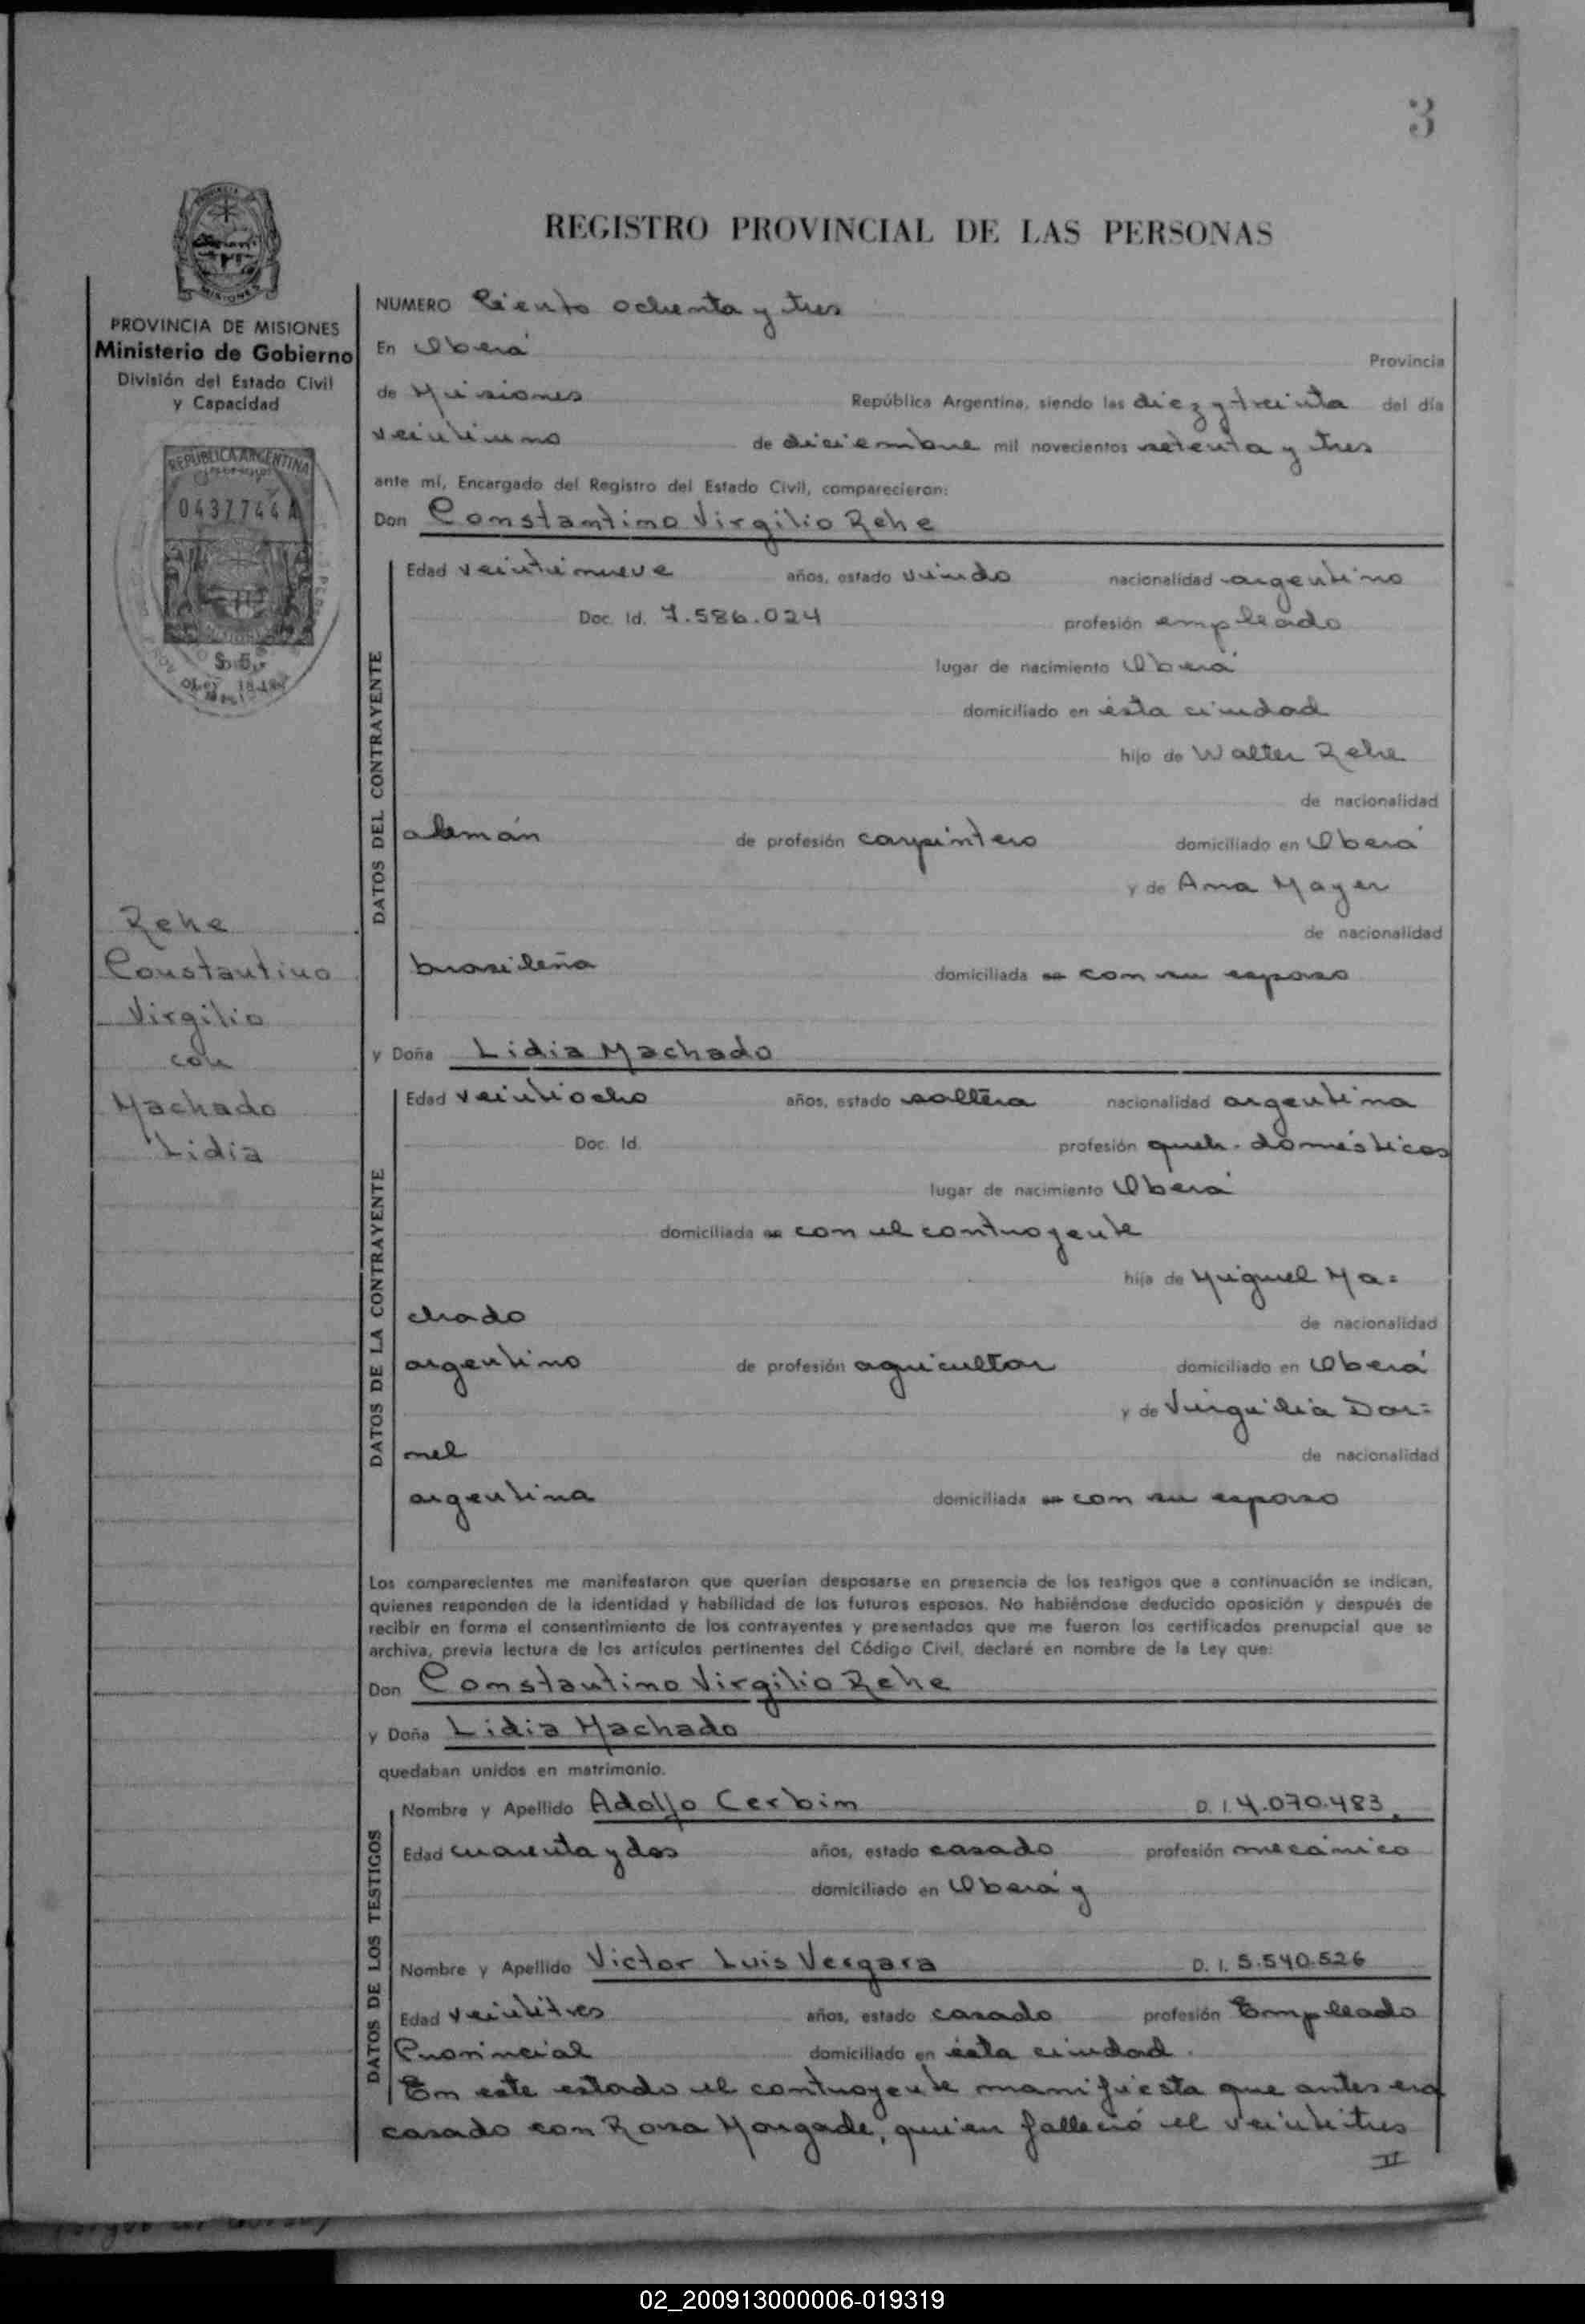 3
REGISTRO PROVINCIAL DE LAS PERSONAS
PROVINCIA DE MISIONES
Ministerio de Gobierno
División del Estado Civil
y Capacidad
REPUBLICA ARGENTINA
0437744 A
Rehe
Constantino
Virgilio
con
Machado
Lidia
NUMERO Ciento ochenta y tres
En Oberá Provincia
de Misiones República Argentina, siendo las diez y treinta del día
veintiuno de diciembre mil novecientos setenta y tres
ante mí, Encargado del Registro del Estado Civil, comparecieron:
Don Constantino Virgilio Rehe
DATOS DEL CONTRAYENTE
Edad veintinueve años, estado viudo nacionalidad argentino
Doc. Id. 7.586.024 profesión empleado
lugar de nacimiento Oberá
domiciliado en ésta ciudad
hijo de Walter Rehe
de nacionalidad
alemán de profesión carpintero domiciliado en Oberá
y de Ana Mayer
de nacionalidad
brasileña domiciliada con su esposo
y Doña Lidia Machado
DATOS DE LA CONTRAYENTE
Edad veintiocho años, estado soltera nacionalidad argentina
Doc. Id. profesión queh. domésticos
lugar de nacimiento Oberá
domiciliada con el contrayente
hija de Miguel Ma=
chado de nacionalidad
argentino de profesión agricultor domiciliado en Oberá
y de Virgilia Dor=
nel de nacionalidad
argentina domiciliada con su esposo
Los comparecientes me manifestaron que querían desposarse en presencia de los testigos que a continuación se indican,
quienes responden de la identidad y habilidad de los futuros esposos. No habiéndose deducido oposición y después de
recibir en forma el consentimiento de los contrayentes y presentados que me fueron los certificados prenupcial que se
archiva, previa lectura de los artículos pertinentes del Código Civil, declaré en nombre de la Ley que:
Don Constantino Virgilio Rehe
y Doña Lidia Machado
quedaban unidos en matrimonio.
DATOS DE LOS TESTIGOS
Nombre y Apellido Adolfo Cerbin D. I. 4.070.483.
Edad cuarenta y dos años, estado casado profesión mecánico
domiciliado en Oberá y
Nombre y Apellido Victor Luis Vergara D. I. 5.540.526
Edad veintitres años, estado casado profesión Empleado
Provincial domiciliado en ésta ciudad.
En este estado el contrayente manifiesta que antes era
casado con Rosa Morgade, quien falleció el veintitres
II
02_200913000006-019319